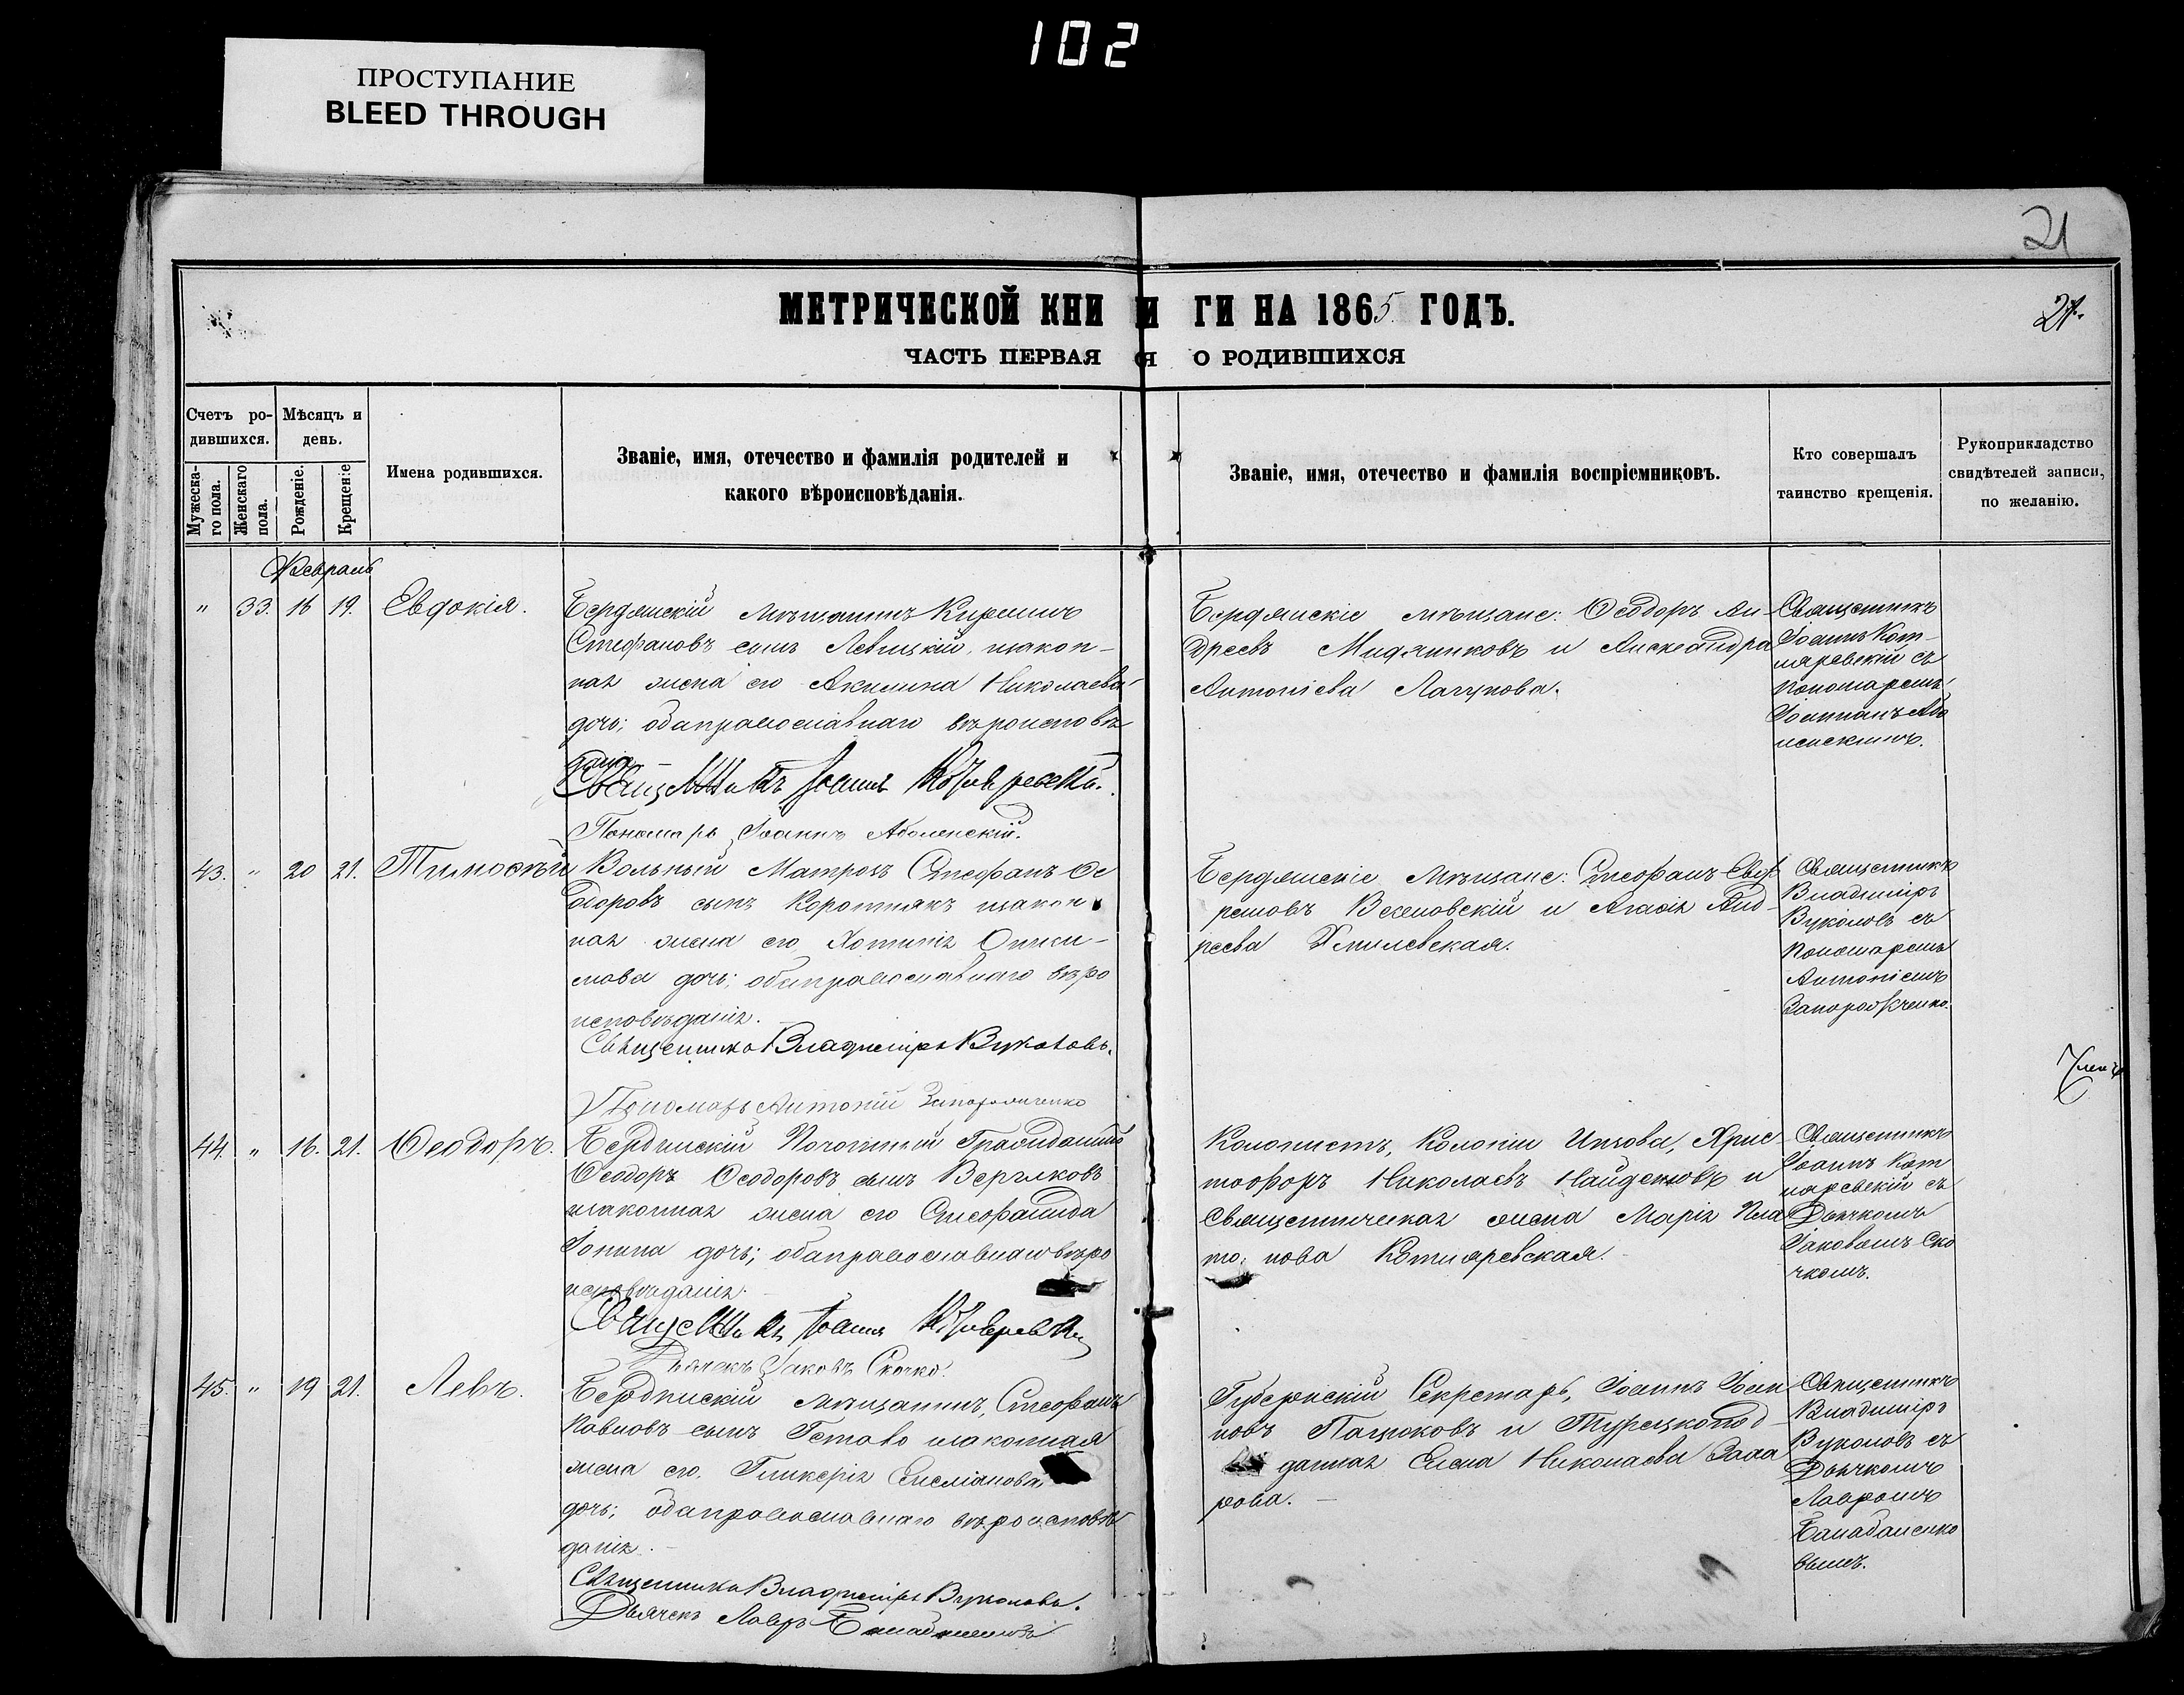 102
ПРОСТУПАНИЕ
BLEED THROUGH
21
МЕТРИЧЕСКОЙ КНИ И ГИ НА 1865 ГОДЪ.
21.
ЧАСТЬ ПЕРВАЯ Я О РОДИВШИХСЯ
Счетъ ро-
дившихся.
Мужеска-
го пола.
Женскаго
пола.
Мѣсяцъ и
день.
Рожденіе.
Крещеніе
Имена родившихся.
Званіе, имя, отечество и фамилія родителей и
какого вѣроисповѣданія.
Званіе, имя, отечество и фамилія воспріемниковъ.
Кто совершалъ
таинство крещенія.
Рукоприкладство
свидѣтелей записи,
по желанію.
Февраль
" 33. 16 19. Евдокія.
Бердянскій мѣщанинъ Кириллъ
Стефановъ сынъ Левицкій, закон-
ная жена его Акилина Николаева
дочь; оба православнаго вѣроисповѣ
данія.
Священникъ Іоаннъ Котляревскій.
Пономарь Іоаннъ Аболенскій.
Бердянскіе мѣщане: Ѳеодоръ Ан-
дреевъ Мидянниковъ и Александра
Антоніева Лагунова.
Священникъ
Іоаннъ Кот-
ляревскій съ
Пономаремъ
Іоанномъ Або
ленскимъ.
43. " 20 21. Тимоѳей
Вольный Матросъ Стефанъ Ѳе
одоровъ сынъ Коротнякъ закон
ная жена его Хотинія Оники-
мова дочь; оба православнаго вѣро
исповѣданія.
Священникъ Владиміръ Вуколовъ.
Пономарь Антоній Запорожченко
Бердянскіе мѣщане: Стефанъ Евф
ремовъ Веселовскій и Агаѳія Анд-
реева Хмилевская.
Священникъ
Владиміръ
Вуколовъ съ
Пономаремъ
Антоніемъ
Запорожченко.
44. " 16. 21. Ѳеодоръ.
Бердянскій Почотный Гражданинъ
Ѳеодоръ Ѳеодоровъ сынъ Вергяковъ
законная жена его Стефанида
Іонина дочь; оба православнаго вѣро
исповѣданія.
Священникъ Іоаннъ Котляревскій
Дьячекъ Іаковъ Скочко.
Колонистъ, Колоніи Инзова, Хрис
тофоръ Николаевъ Найденовъ и
Священническая жена Марія Пла
то: нова Котляревская.
Священникъ
Іоаннъ Кот
ляревскій съ
Дьячкомъ
Іаковомъ Ско
чкомъ.
45. " 19 21. Левъ.
Бердянскій мѣщанинъ, Стефанъ
Павловъ сынъ законная
жена его Гликерія Емеліанова
дочь; оба православнаго вѣроисповѣ
данія.
Священникъ Владиміръ Вуколовъ.
Дьячекъ Лавръ
Губернскій Секретарь, Іоаннъ Іоан
новъ Пацюковъ и Турецкопод-
данная Елена Николаева Заха
рова.
Священникъ
Владиміръ
Вуколовъ съ
Дьячкомъ
Лавромъ
Балабаненко
вымъ.